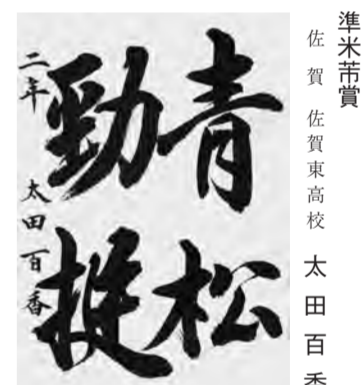 準米芾賞
佐賀 佐賀東高校 太田百香
青松
勁挺
二年 太田百香